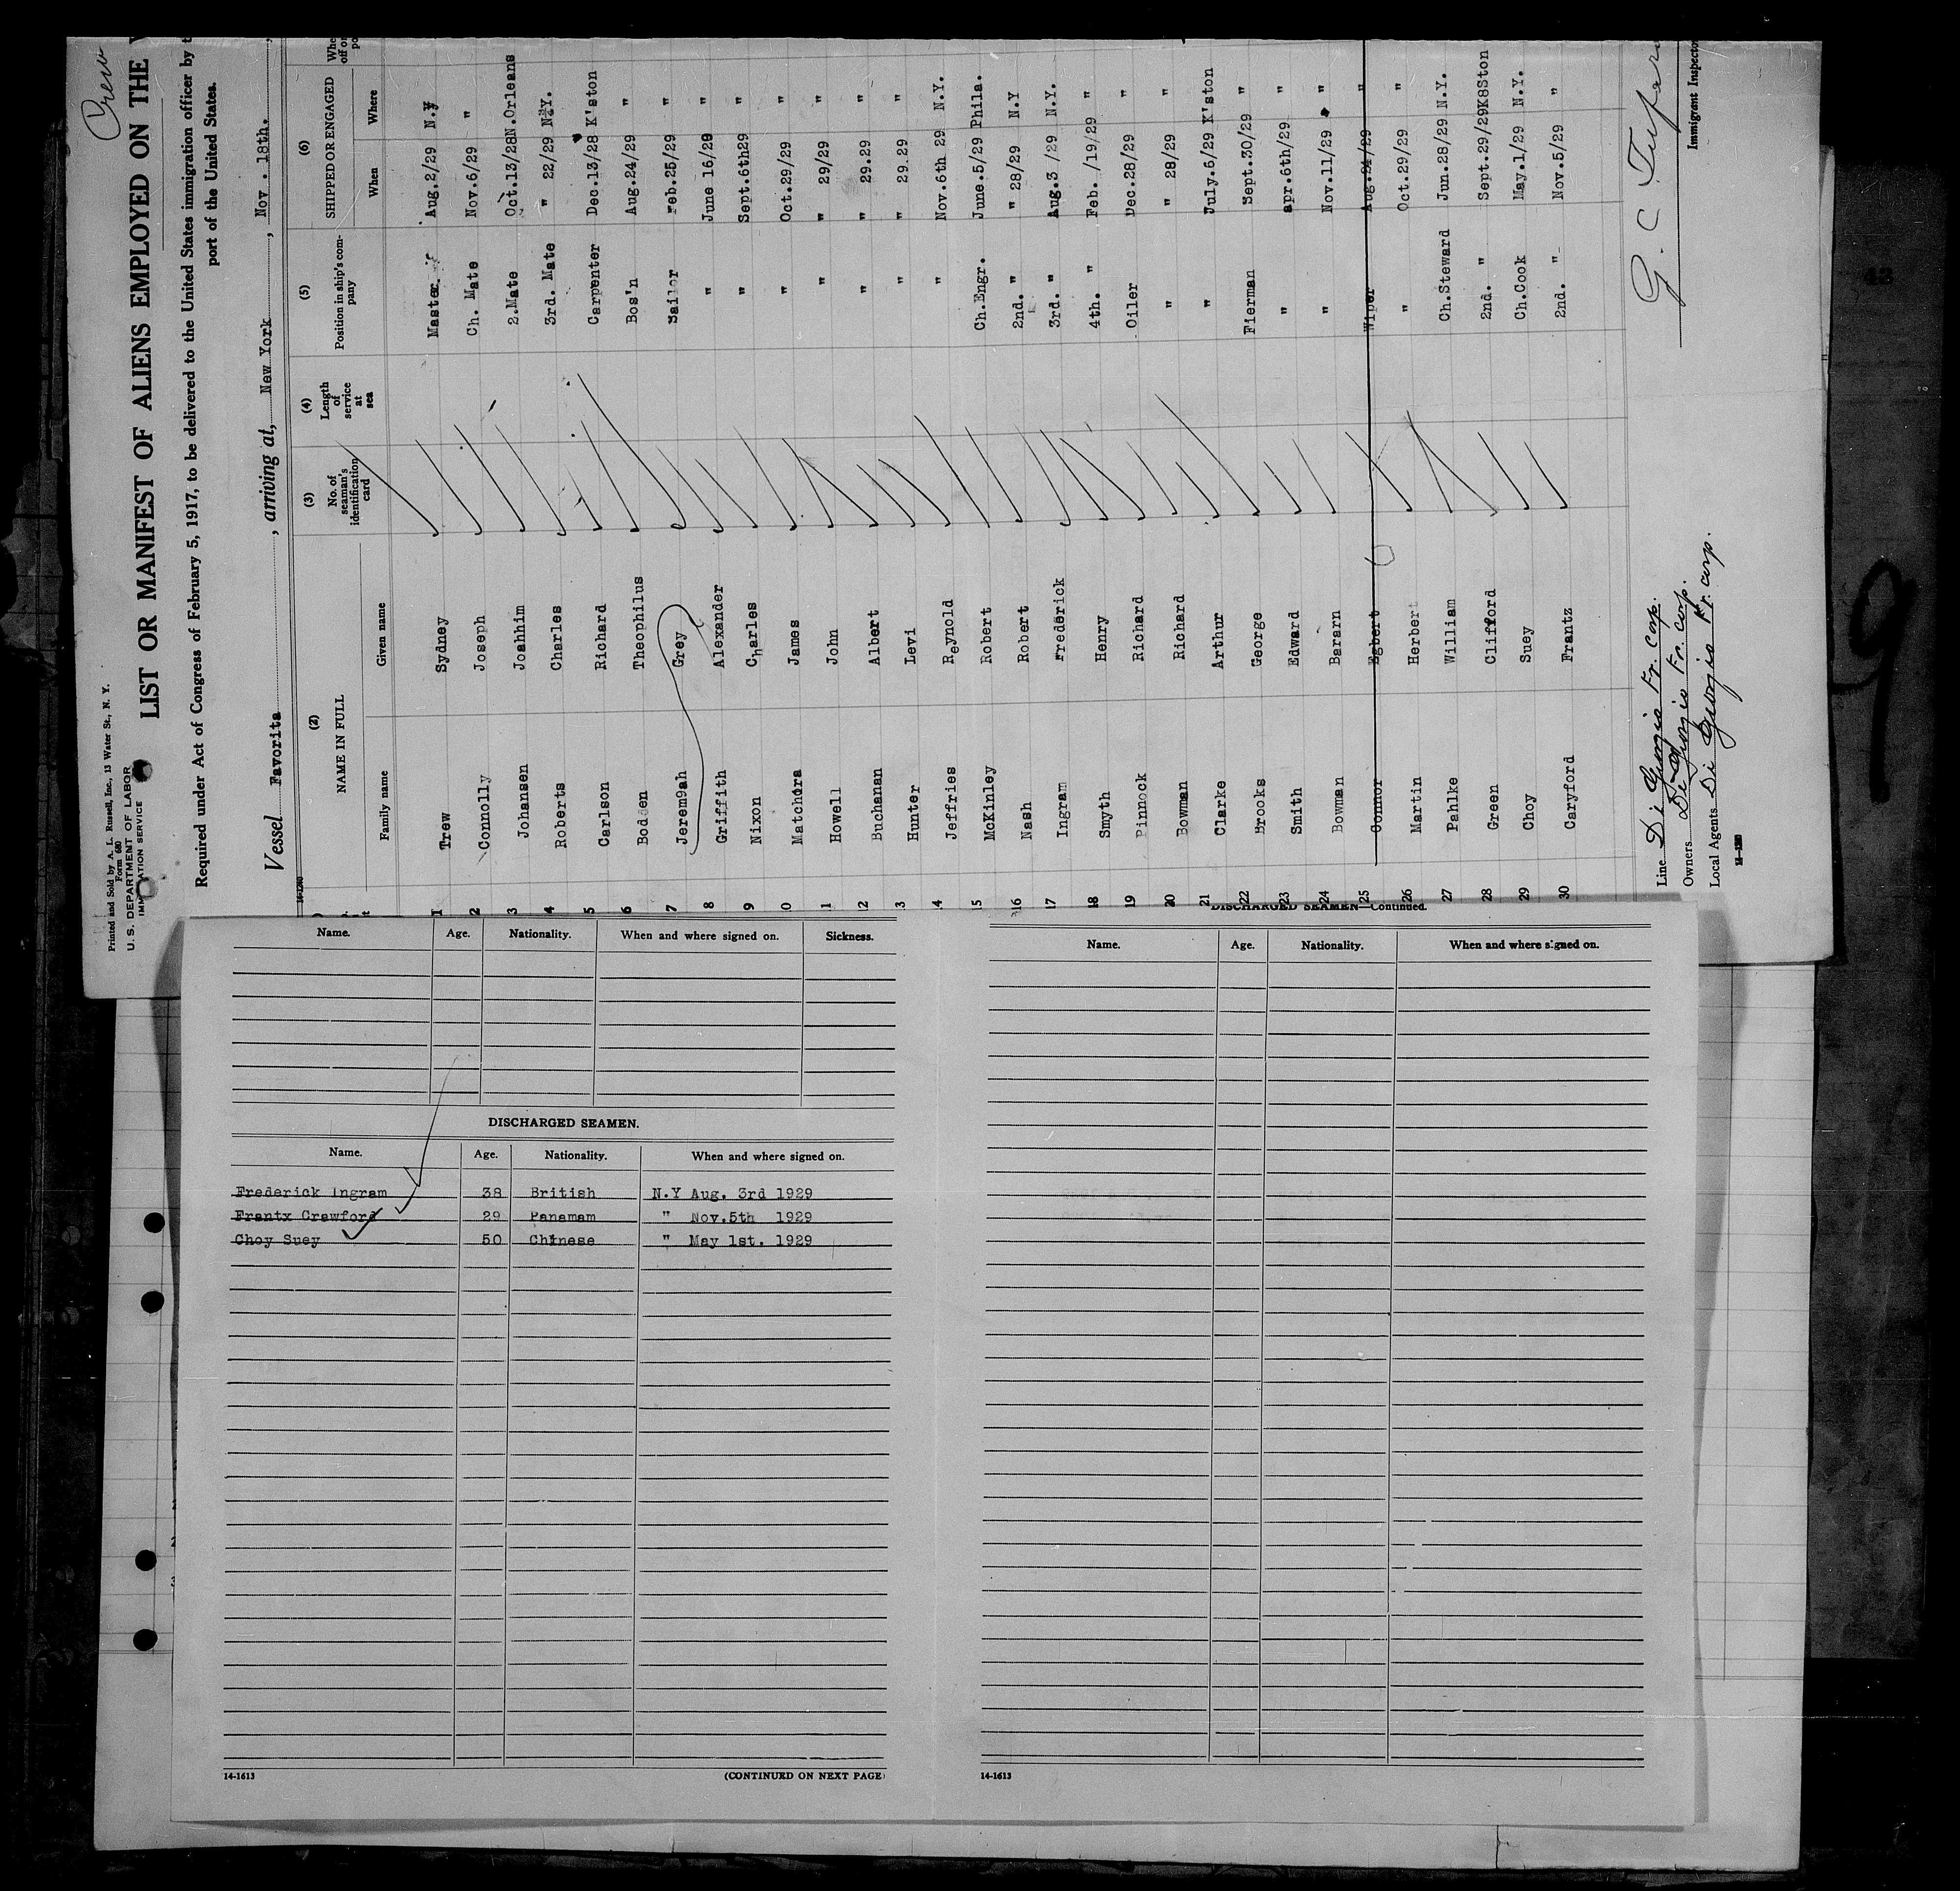 Crew
Printed and Sold by A. L. Russell, Inc., 13 Water St., N. Y.
Form 680
U. S. DEPARTMENT OF LABOR
IMMIGRATION SERVICE
LIST OR MANIFEST OF ALIENS EMPLOYED ON THE
Required under Act of Congress of February 5, 1917, to be delivered to the United States immigration officer by
port of the United States.
Vessel Favorita, arriving at, New York, Nov. 18th.
(2) (3) (4) (5) (6)
NAME IN FULL No. of seaman's identification card Length of service at sea Position in ship's company SHIPPED OR ENGAGED
Family name Given name When Where
1 Trew Sydney Master Aug.2/29 N.Y
2 Connolly Joseph Ch. Mate Nov.6/29 "
3 Johansen Joahhim 2.Mate Oct.13/28 N.Orleans
4 Roberts Charles 3rd. Mate " 22/29 N.Y.
5 Carlson Richard Carpenter Dec.13/28 K'ston
6 Bodden Theophilus Bos'n Aug.24/29 "
7 Jeremgah Grey Sailor Feb.25/29 "
8 Griffith Alexander " June 16/29 "
9 Nixon Charles " Sept.6th29 "
10 Matchera James " Oct.29/29 "
11 Howell John " " 29/29 "
12 Buchanan Albert " " 29.29 "
13 Hunter Levi " " 29.29 "
14 Jeffries Reynold " Nov.6th 29 N.Y.
15 McKinley Robert Ch.Engr. June.5/29 Phila.
16 Nash Robert 2nd. " " 28/29 N.Y
17 Ingram Frederick 3rd. " Aug.3 /29 N.Y.
18 Smyth Henry 4th. " Feb. /19/29 "
19 Pinnock Richard Oiler Dec.28/29 "
20 Bowman Richard " " 28/29 "
21 Clarke Arthur " July.6/29 K'ston
22 Brooks George Fierman Sept.30/29 "
23 Smith Edward " apr.6th/29 "
24 Bowman Bararn " Nov.11/29 "
25 Connor Egbert Wiper Aug.24/29 "
26 Martin Herbert " Oct.29/29 "
27 Pahlke William Ch.Steward Jun.28/29 N.Y.
28 Green Clifford 2nd. " Sept.29/29K8Ston
29 Choy Suey Ch.Cook May.1/29 N.Y.
30 Caryford Frantz 2nd. " Nov.5/29 "
Line Di Giorgio Fr. Corp.
Owners Di Giorgio Fr. corp.
Local Agents Di Giorgio Fr. corp.
Immigrant Inspector
9
Name. Age. Nationality. When and where signed on. Sickness.
DISCHARGED SEAMEN.
Name. Age. Nationality. When and where signed on.
Frederick Ingram 38 British N.Y Aug. 3rd 1929
Frantx Crawford 29 Panamam " Nov.5th 1929
Choy Suey 50 Chinese " May 1st. 1929
14-1613 (CONTINUED ON NEXT PAGE)
DISCHARGED SEAMEN—Continued.
Name. Age. Nationality. When and where signed on.
14-1613